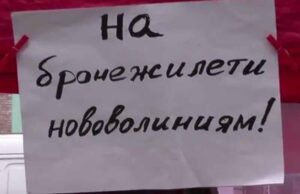 на
бронежилети
нововолиниям!